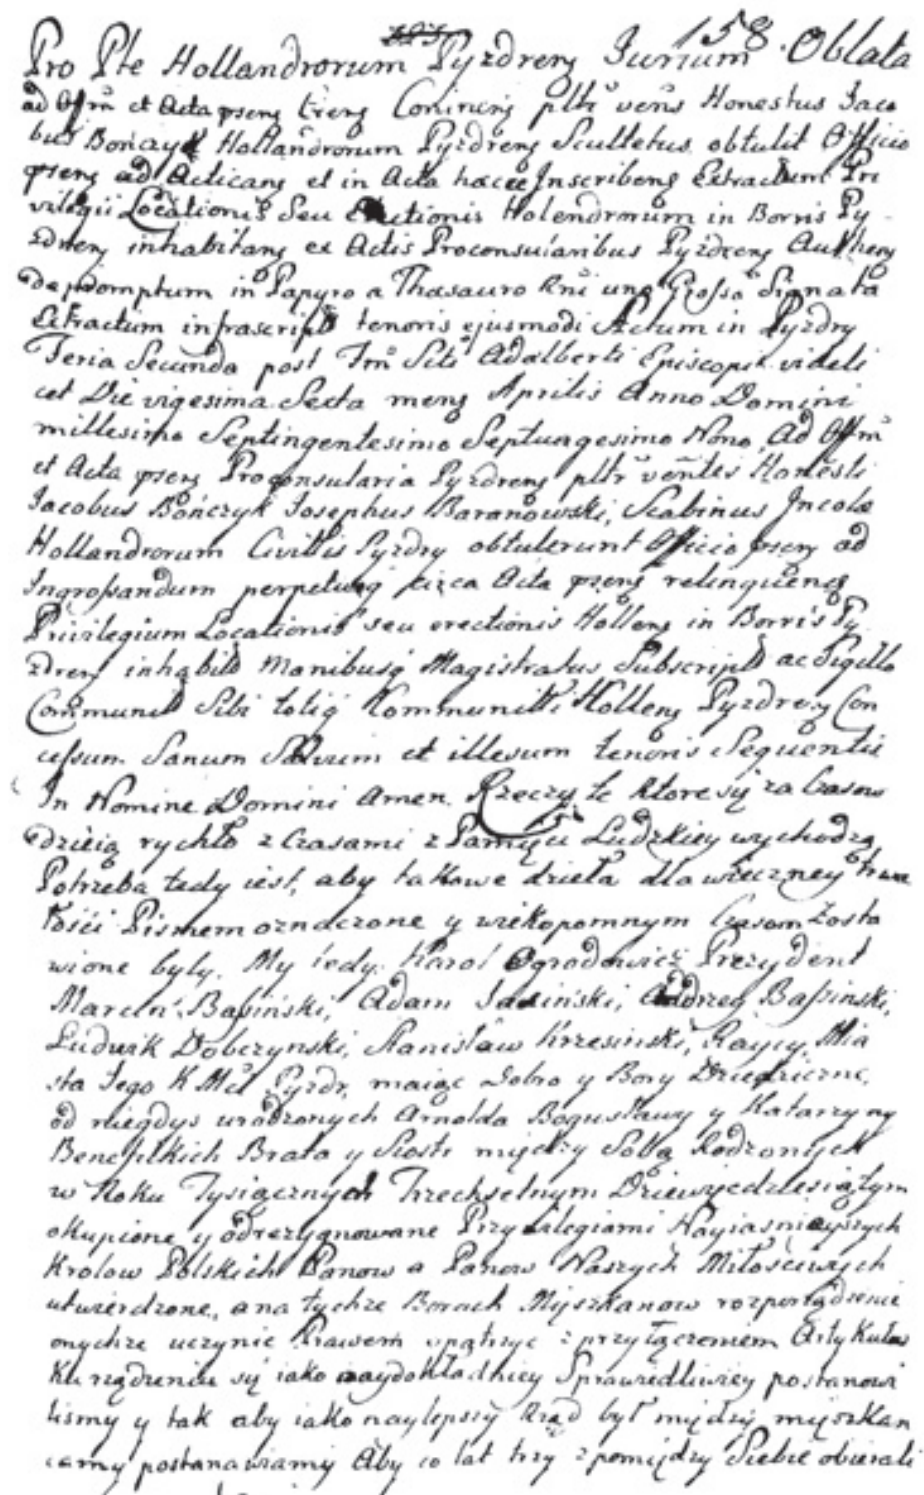 158.
Pro Pte Hollandrorum Pyzdren Jurium Oblata
ad Offm et Acta psens Coninen pltr vens Honestus Jaco
bus Bończyk Hollandrorum Pyzdren Scultetus obtulit Officio
psens ad Acticans et in Acta hacce Inscribens Extractum Pri
vilegii Locationis Seu Erectionis Holendrorum in Borris Py
zdren inhabitans ex Actis Proconsularibus Pyzdren Authen
depromptum in Papyro a Thesauro Rni una Grossa Signata
Extractum infrascript tenoris ejusmodi Actum in Pyzdry
Feria Secunda post Sti Adalberti Episcopi videli
cet Die vigesima Sexta mens Aprilis Anno Domini
millesimo Septingentesimo Septuagesimo Nono, Ad Offm
et Acta psens Proconsularia Pyzdren pltr ventes Honesti
Jacobus Bończyk Josephus Baranowski, Scabinus Incolæ
Hollandrorum Civittis Pyzdry obtulerunt Officio psens ad
Ingrossandum perpetuoq circa Acta psens relinquens
Privilegium Locationis seu erectionis Hollens in Borris Py
zdren inhabit Manibusq Magistratus Subscript ac Sigillo
Communit Sibi totiq Kommunitti Hollens Pyzdren Con
cessum Sanum Salvum et illesum tenoris Sequentis
In Nomine Domini Amen. Rzeczy te które się za Czasow
dzieią rychło z Czasami z Pamięci Ludzkiey wychodzą
Potrzeba tedy iest, aby takowe dzieła dla wieczney trwa
łości Pismem oznaczone y wiekopomnym Czasom zosta
wione były. My tedy Karol Ogrodowicz Prezydent
Marcin Basiński, Adam Jasiński, Andrzey Bassinski,
Ludwik Dobczynski, Stanisław Krzesinski, Raycy Mia
sta tego K Mci Pyzdr, maiąc Dobro y Bory Dziedziczne,
od niegdys urodzonych Arnolda Bogusławy y Katarzyny
Brata y Siostr między Sobą Rodzonych
w Roku Tysiącznym Trzechsetnym Dziewięćdziesiątym
okupione y odrezygnowane Przywilegiami Nayiasnieyszych
Krolow Polskich Panow a Panow Naszych Miłościwych
utwierdzone, a na tychże Borach Mięszkanow rozporządzenie
onychże uczynić Prawem opatrzyc z przyłączeniem Artykułow
Ku rządzeniu się iako naydokładniey Sprawiedliwiey postanowi
lismy y tak aby iako naylepszy Rząd był między mięszkan
cami postanawiamy Aby co lat trzy z pomiędzy Siebie obierali